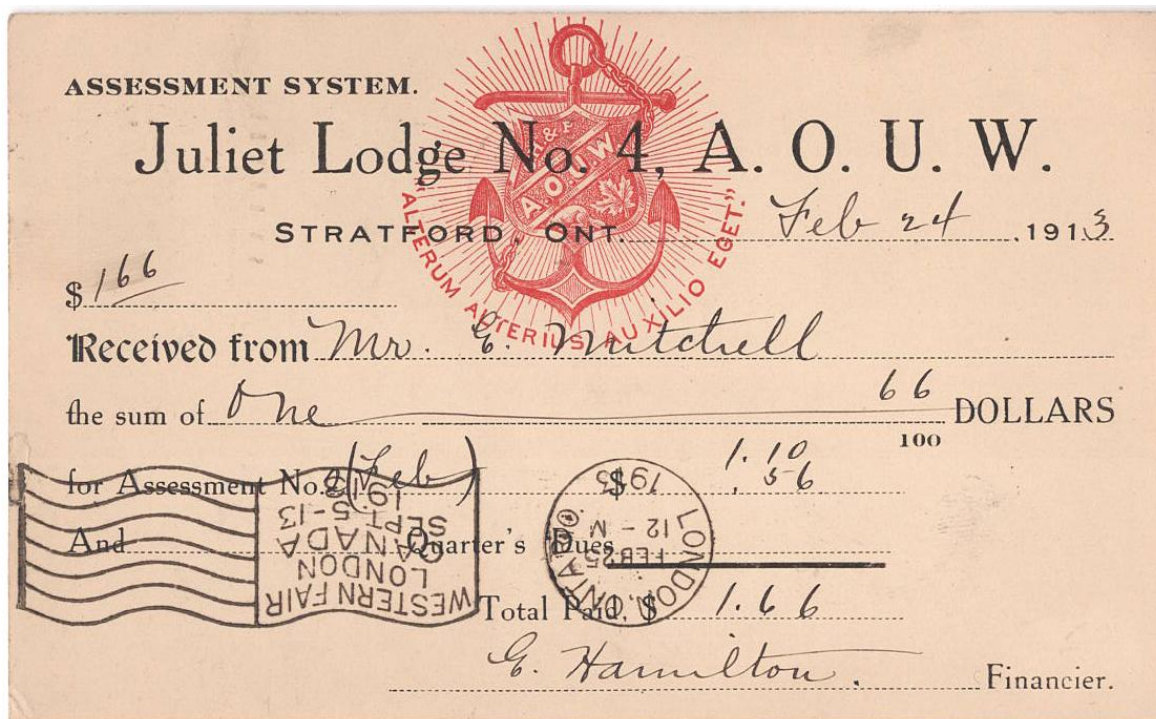 ASSESSMENT SYSTEM.
Juliet Lodge No. 4, A. O. U. W.
H & P
A.O.U.W
"ALTERUM ALTERIUS AUXILIO EGET."
STRATFORD, ONT. Feb 24 1913
$ 1 66
Received from Mr. E. Mitchell
the sum of One 66/100 DOLLARS
for Assessment No. 2 (Feb) $ 1.10
.56
And Quarter's Dues
Total Paid, $ 1.66
E. Hamilton. Financier.
WESTERN FAIR
LONDON
CANADA
SEPT. 5-13
1913
LONDON, ONTARIO.
FEB 25
12 - M
1913